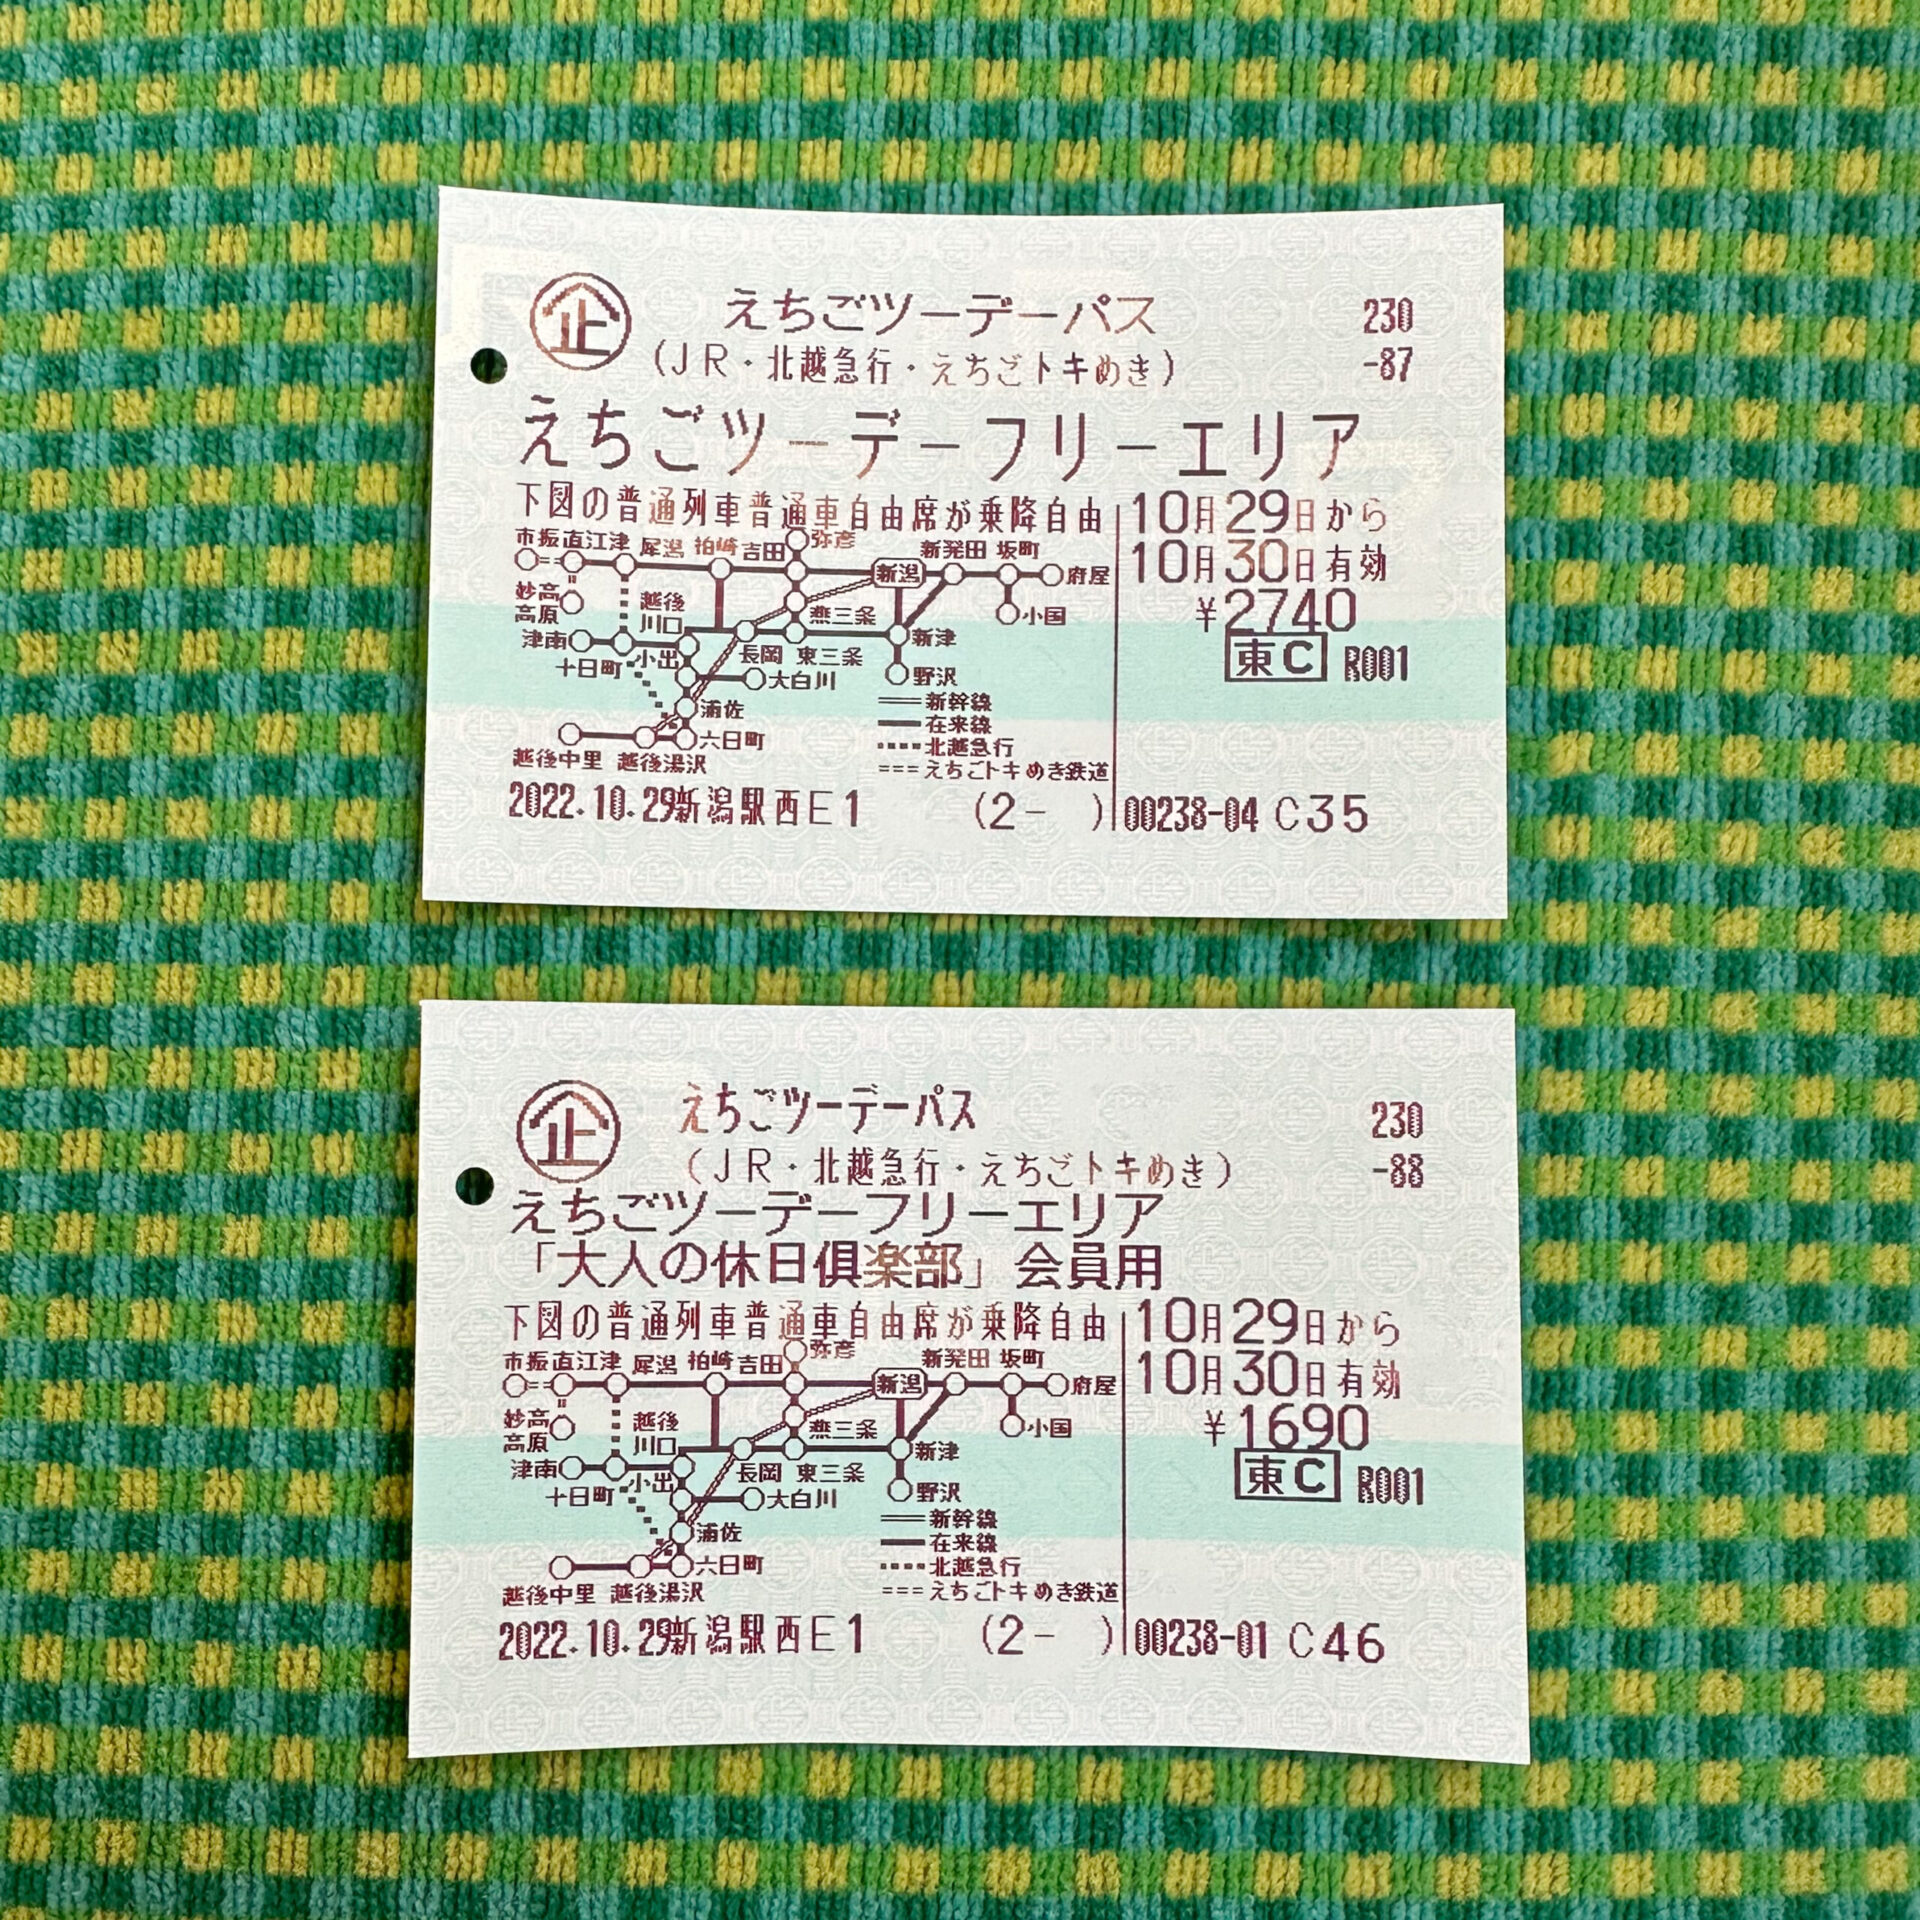 企 えちごツーデーパス 230
(JR・北越急行・えちごトキめき) -87
えちごツーデーフリーエリア
下図の普通列車普通車自由席が乗降自由 10月29日から
10月30日有効
¥2740
東C R001
弥彦
市振 直江津 犀潟 柏崎 吉田 新潟 新発田 坂町 府屋
妙高高原 越後川口 燕三条 小国
津南 十日町 小出 長岡 東三条 新津
大白川 野沢
浦佐 新幹線
六日町 在来線
北越急行
越後中里 越後湯沢 えちごトキめき鉄道
2022.10.29新潟駅西E1 (2- ) 00238-04 C35
企 えちごツーデーパス 230
(JR・北越急行・えちごトキめき) -88
えちごツーデーフリーエリア
「大人の休日倶楽部」会員用
下図の普通列車普通車自由席が乗降自由 10月29日から
10月30日有効
¥1690
東C R001
弥彦
市振 直江津 犀潟 柏崎 吉田 新潟 新発田 坂町 府屋
妙高高原 越後川口 燕三条 小国
津南 十日町 小出 長岡 東三条 新津
大白川 野沢
浦佐 新幹線
六日町 在来線
北越急行
越後中里 越後湯沢 えちごトキめき鉄道
2022.10.29新潟駅西E1 (2- ) 00238-01 C46